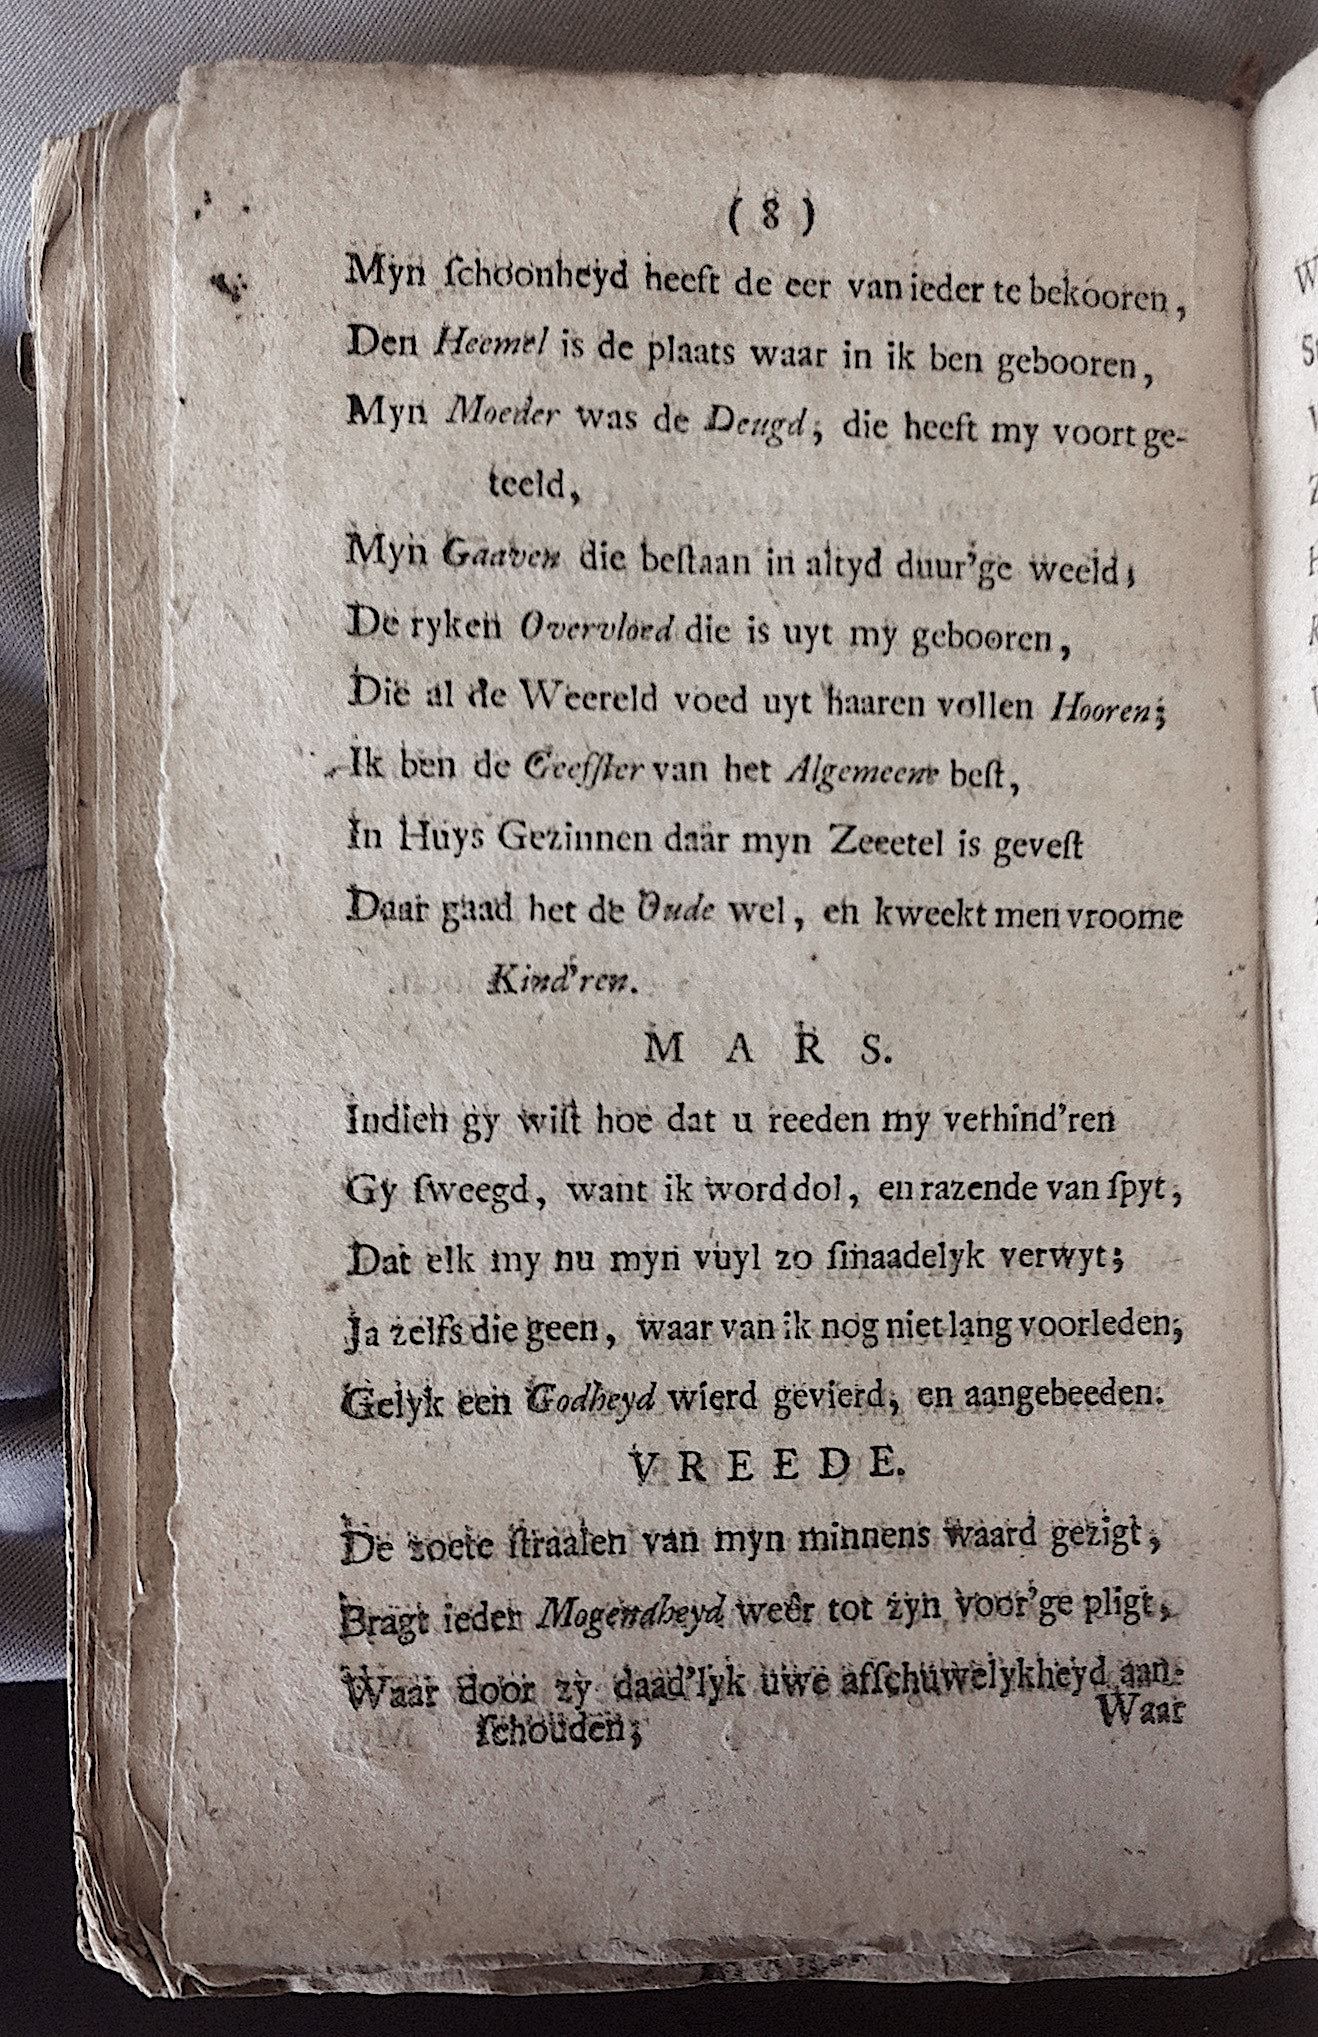 ( 8 )
Myn ſchoonheyd heeft de eer van ieder te bekooren,
Den Heemel is de plaats waar in ik ben gebooren,
Myn Moeder was de Deugd; die heeft my voort ge-
teeld,
Myn Gaaven die beſtaan in altyd duur'ge weeld;
De ryken Overvloed die is uyt my gebooren,
Die al de Weereld voed uyt haaren vollen Hooren;
Ik ben de Geefſter van het Algemeene beſt,
In Huys Gezinnen daar myn Zeeetel is geveſt
Daar gaad het de Oude wel, en kweekt men vroome
Kind'ren.
M A R S.
Indien gy wiſt hoe dat u reeden my verhind'ren
Gy ſweegd, want ik word dol, en razende van ſpyt,
Dat elk my nu myn vuyl zo ſmaadelyk verwyt;
Ja zelfs die geen, waar van ik nog niet lang voorleden;
Gelyk een Godheyd wierd gevierd, en aangebeeden.
V R E E D E.
De zoete ſtraalen van myn minnens waard gezigt,
Bragt ieder Mogendheyd weêr tot zyn voor'ge pligt,
Waar door zy daad'lyk uwe afſchuwelykheyd aan-
ſchouden;
Waar